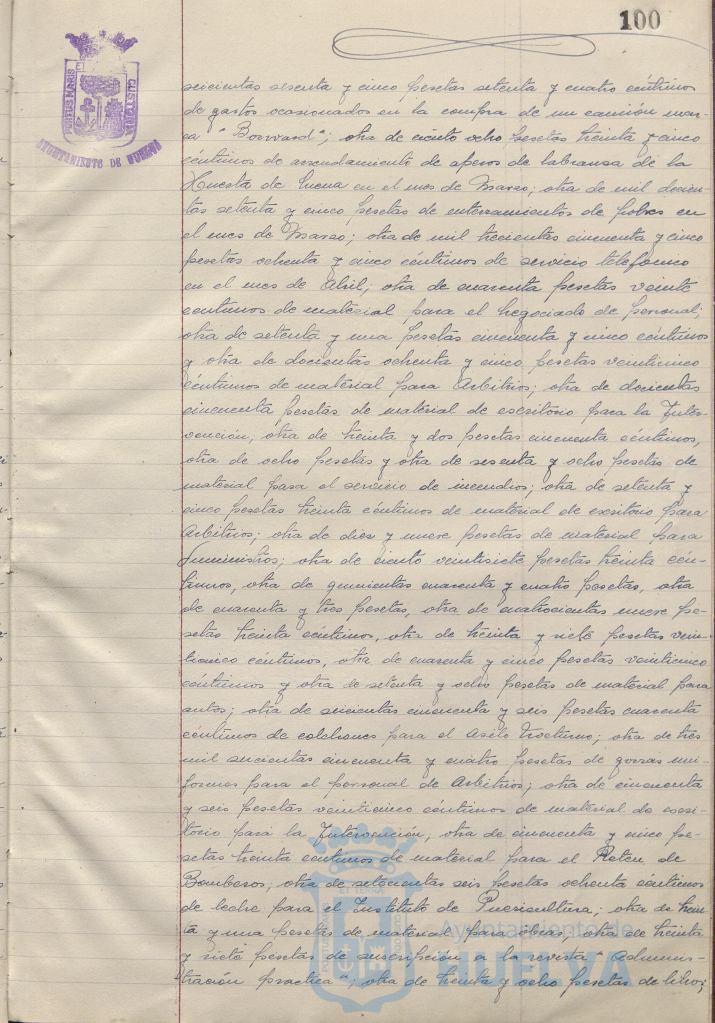 100
PORTUS MARIS
CUSTODIA
AYUNTAMIENTO DE HUELVA
seicientas sesenta y cinco pesetas setenta y cuatro céntimos
de gastos ocasionados en la compra de un camión mar-
ca "Borward"; otra de ciento ocho pesetas treinta y cinco
céntimos de arrendamiento de aperos de labranza de la
Huerta de Mena en el mes de Marzo; otra de mil docien-
tas setenta y cinco pesetas de enterramientos de pobres en
el mes de Marzo; otra de mil trecientas cincuenta y cinco
pesetas ochenta y cinco céntimos de servicio telefónico
en el mes de Abril; otra de cuarenta pesetas veinte
céntimos de material para el negociado de personal;
otra de setenta y una pesetas cincuenta y cinco céntimos
y otra de docientas ochenta y cinco pesetas veinticinco
céntimos de material para Arbitrios; otra de docientas
cincuenta pesetas de material de escritorio para la Inter-
vención; otra de treinta y dos pesetas cincuenta céntimos,
otra de ocho pesetas y otra de sesenta y ocho pesetas de
material para el servicio de incendios; otra de setenta y
cinco pesetas treinta céntimos de material de escritorio para
Arbitrios; otra de diez y nueve pesetas de material para
Suministros; otra de ciento veintisiete pesetas treinta cén-
timos, otra de quinientas cuarenta y cuatro pesetas, otra
de cuarenta y tres pesetas, otra de cuatrocientas nueve pe-
setas treinta céntimos, otra de treinta y siete pesetas vein-
ticinco céntimos, otra de cuarenta y cinco pesetas veinticinco
céntimos y otra de setenta y ocho pesetas de material para
autos; otra de seicientas cincuenta y seis pesetas cuarenta
céntimos de colchones para el Asilo Nocturno; otra de tres
mil seicientas cincuenta y cuatro pesetas de gorras uni-
formes para el personal de Arbitrios; otra de cincuenta
y seis pesetas veinticinco céntimos de material de escri-
torio para la Intervención, otra de cincuenta y cinco pe-
setas treinta céntimos de material para el Reten de
Bomberos; otra de setecientas seis pesetas ochenta céntimos
de leche para el Instituto de Puericultura; otra de trein-
ta y una pesetas de material para obras, otra de treinta
y siete pesetas de suscripción a la revista "Adminis-
tración práctica"; otra de treinta y ocho pesetas de libros;
ET TERRA
PORTUS MARIS
CUSTODIA
Ayuntamiento de
HUELVA